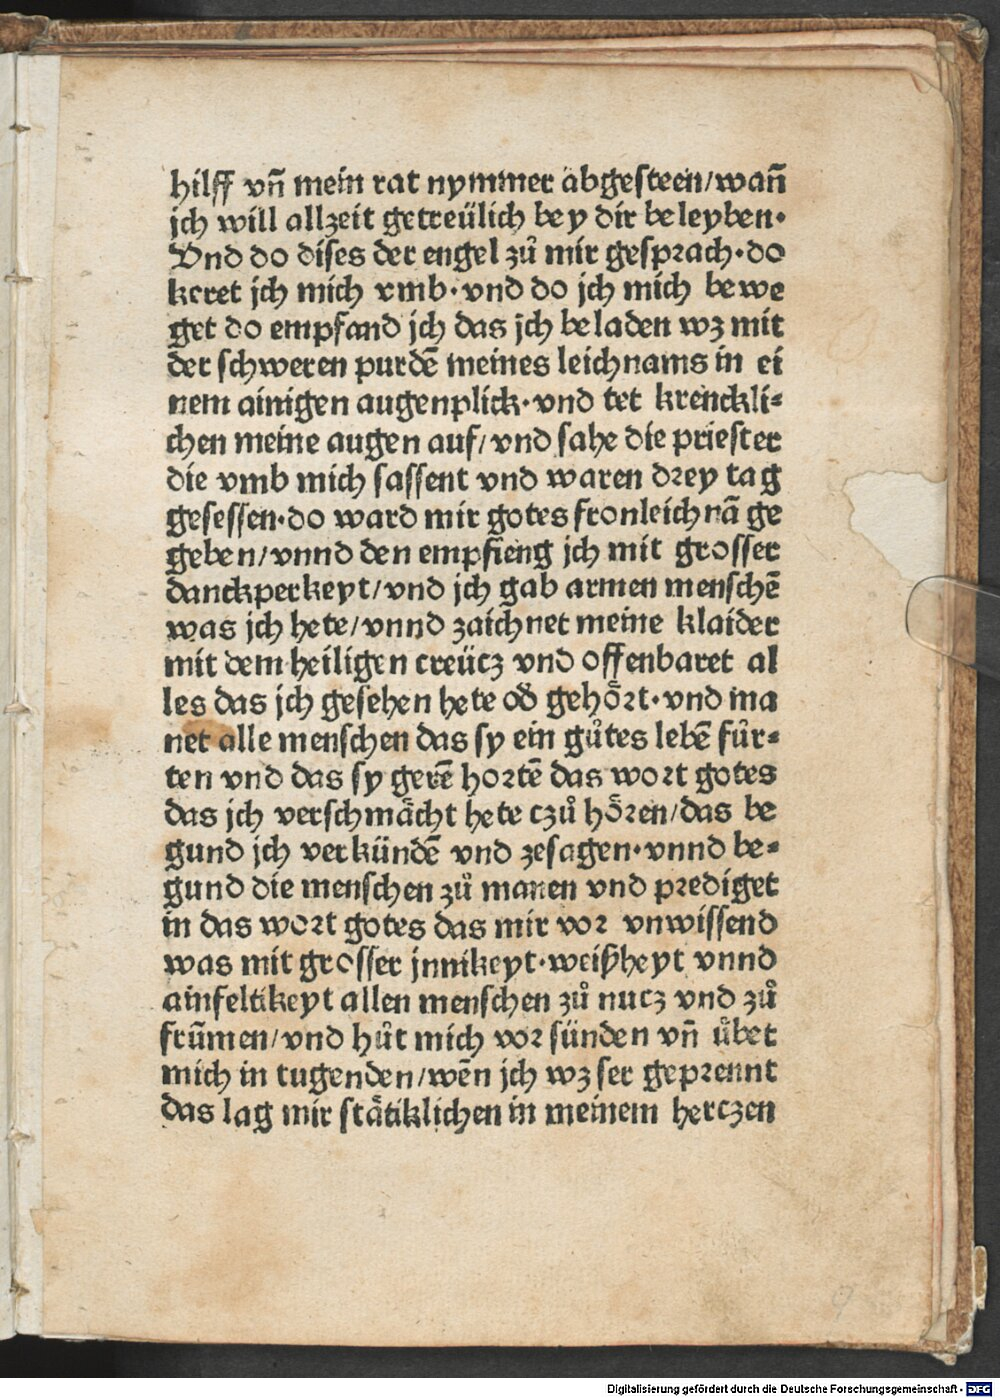 hilff vn̄ mein rat nymmer abgesteen/wan̄
jch will allzeit getreülich bey dir beleyben·
Vnd do dises der engel zů mir gesprach·do
keret jch mich vmb·vnd do jch mich bewe
get do empfand jch das jch beladen wz mit
der schweren purdē meines leichnams in ei
nem ainigen augenplick·vnd tet krenckli⸗
chen meine augen auf/vnd sahe die priester
die vmb mich sassent vnd waren drey tag
gesessen·do ward mir gotes fronleichnā ge
geben/vnnd den empfieng jch mit grosser
danckperkeyt/vnd jch gab armen menschē
was jch hete/vnnd zaichnet meine klaider
mit dem heiligen creücz vnd offenbaret al
les das jch gesehen hete od̓ gehoͤrt·vnd ma
net alle menschen das sy ein gůtes lebē fůr⸗
ten vnd das sy gerē hortē das wort gotes
das jch verschmaͤcht hete czů hoͤren/das be
gund jch verkündē vnd zesagen·vnnd be⸗
gund die menschen zů manen vnd prediget
in das wort gotes das mir vor vnwissend
was mit grosser jnnikeyt·weißheyt vnnd
ainfeltikeyt allen menschen zů nucz vnd zů
frūmen/vnd hůt mich vor sünden vn̄ uͤbet
mich in tugenden/wēn jch wz ser geprennt
das lag mir staͤtiklichen in meinem herczen
9
Digitalisierung gefördert durch die Deutsche Forschungsgemeinschaft - DFG
DFG